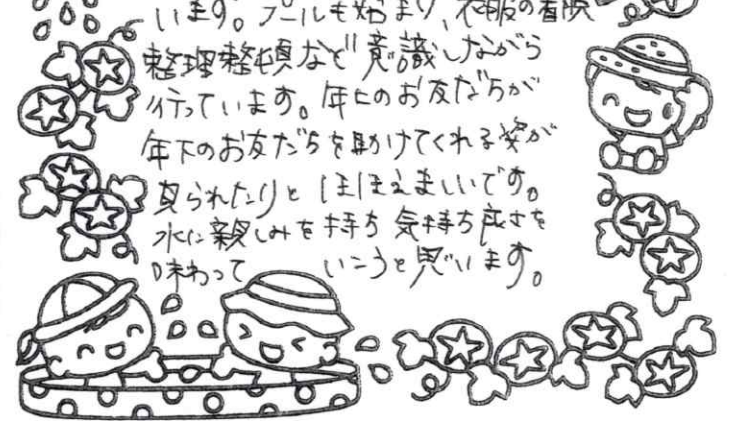 います。プールも始まり、衣服の着脱
整理整頓など意識しながら
行っています。年上のお友だちが
年下のお友だちを助けてくれる姿が
見られたりとほほえましいです。
水に親しみを持ち気持ち良さを
味わって いこうと思います。